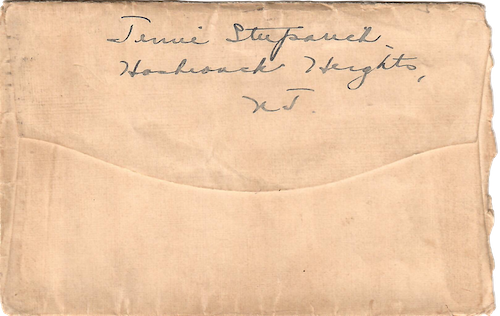 Jennie Stefanich
Hasbrouck Heights,
NJ.